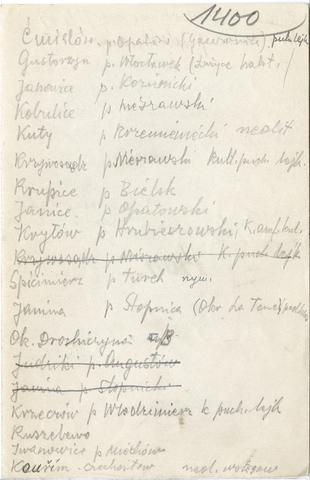 1400
Ćmielów p. Opatów (Gawroniec) puch. lejk.
Gustorzyn p. Włocławek (
Janowice p. Kozienicki
Kobulice p. mszawski
Kuty p. Krzemieniecki neolit
Krzywosądz p. Nieszawski kult. puch. lejk.
Krupice p Bielsk
Janice p Opatowski
Kryłów p Hrubieszowski, K. amf. kul.
Krzywosądz p Nieszawski K puch lejk
Spicimierz p turek rzym.
Janina p Stopnica (Okr. La Tene)
Ok. Drohiczyna n/B
Judziki p. Augustów
Janina p Stopnicki
Krzeczów p Włodzimierz k puch. lejk
Ruszkowo
Iwanowice p Miechów
Kouřim